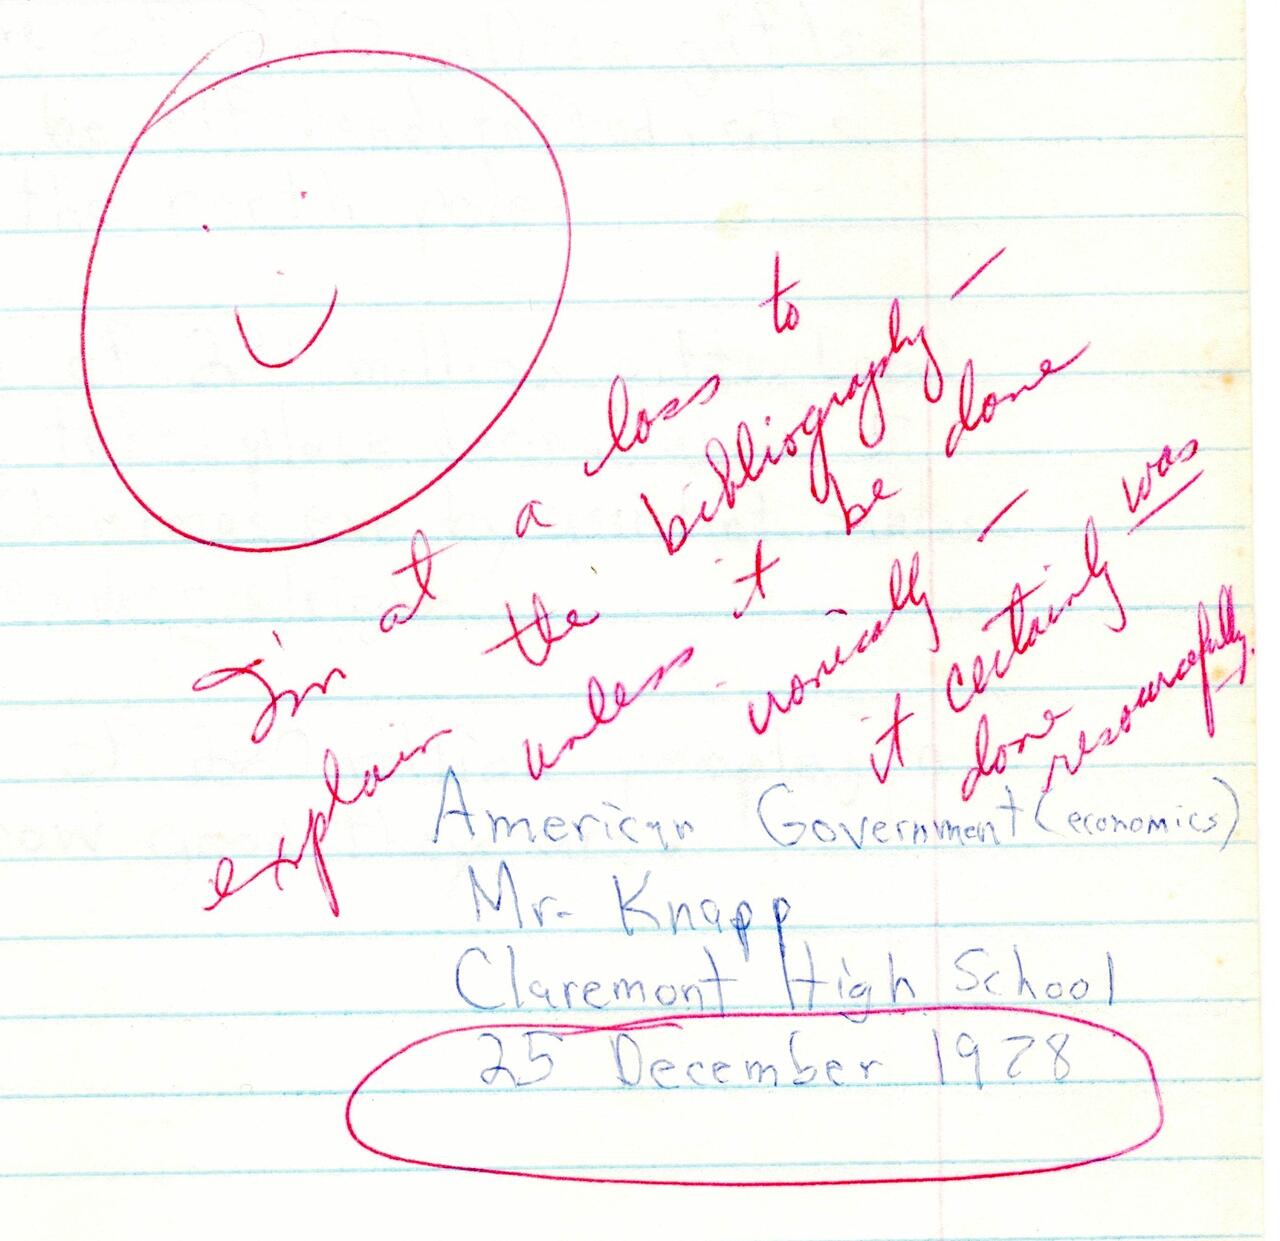 I'm at a loss to
explain the bibliography —
unless it be done
ironically —
it certainly was
done resourcefully.
American Government (economics)
Mr. Knapp
Claremont High School
25 December 1978